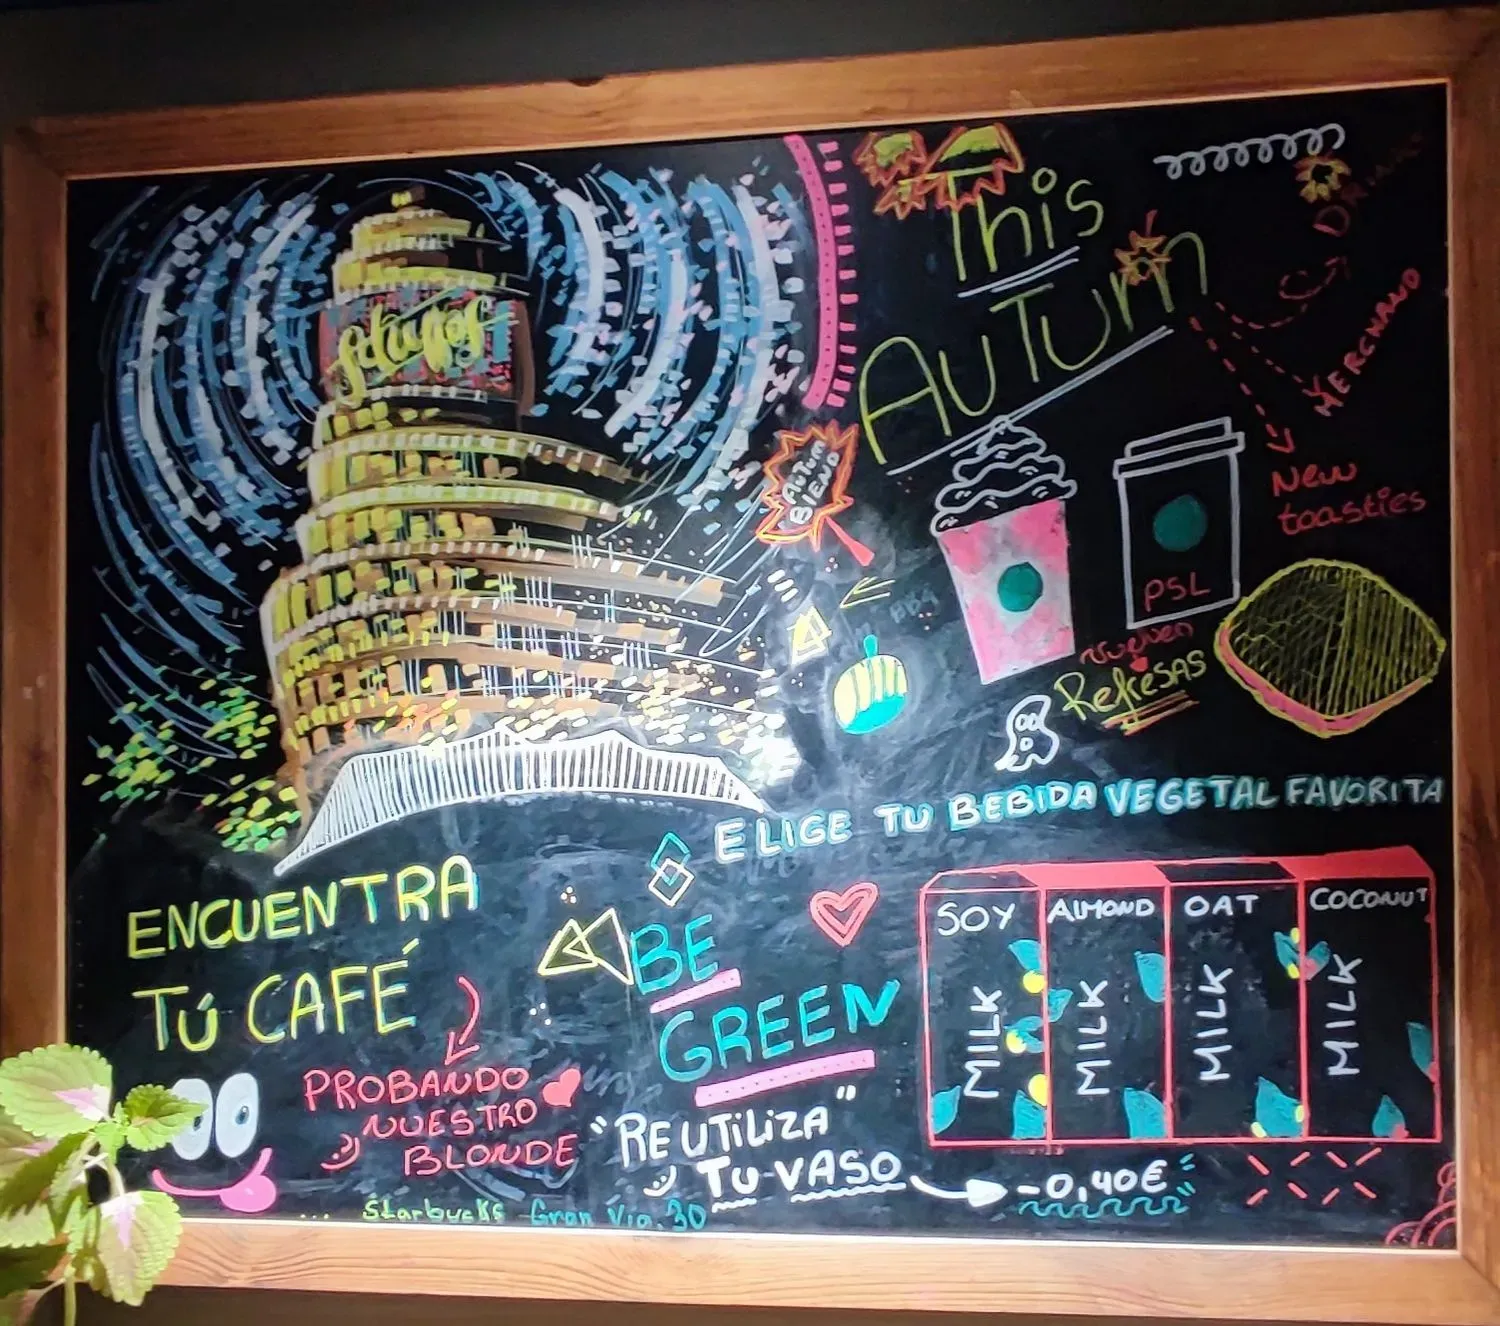 This
AuTumn
DRINKS
MERCHAND
New
toasties
AUTUMN
BLEND
PSL
vuelven
Refresas
ELIGE TU BEBIDA VEGETAL FAVORITA
SOY MILK
ALMOND MILK
OAT MILK
COCONUT MILK
ENCUENTRA
TÚ CAFÉ
PROBANDO
NUESTRO
BLONDE
BE
GREEN
"REUTILIZA"
TU VASO
-0,40€
... Starbucks Gran Via.30